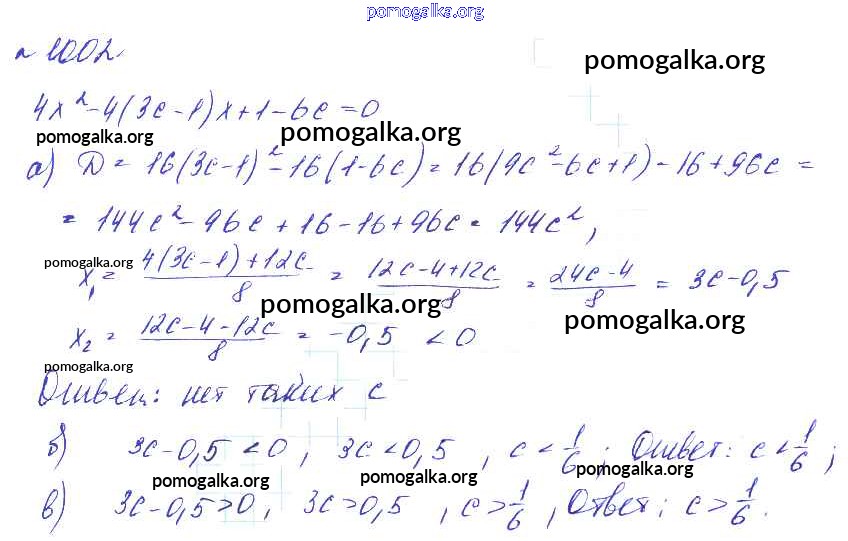 pomogalka.org
№ 1002
pomogalka.org
4x² - 4(3c - 1)x + 1 - 6c = 0
pomogalka.org pomogalka.org
а) D = 16(3c - 1)² - 16(1 - 6c) = 16(9c² - 6c + 1) - 16 + 96c =
= 144c² - 96c + 16 - 16 + 96c = 144c²,
pomogalka.org
x₁ = (4(3c - 1) + 12c)/8 = (12c - 4 + 12c)/8 = (24c - 4)/8 = 3c - 0,5
pomogalka.org pomogalka.org
x₂ = (12c - 4 - 12c)/8 = -0,5 < 0
pomogalka.org
Ответ: нет таких c
б) 3c - 0,5 < 0, 3c < 0,5, c < 1/6; Ответ: c < 1/6;
pomogalka.org pomogalka.org pomogalka.org
в) 3c - 0,5 > 0, 3c > 0,5, c > 1/6, Ответ: c > 1/6.